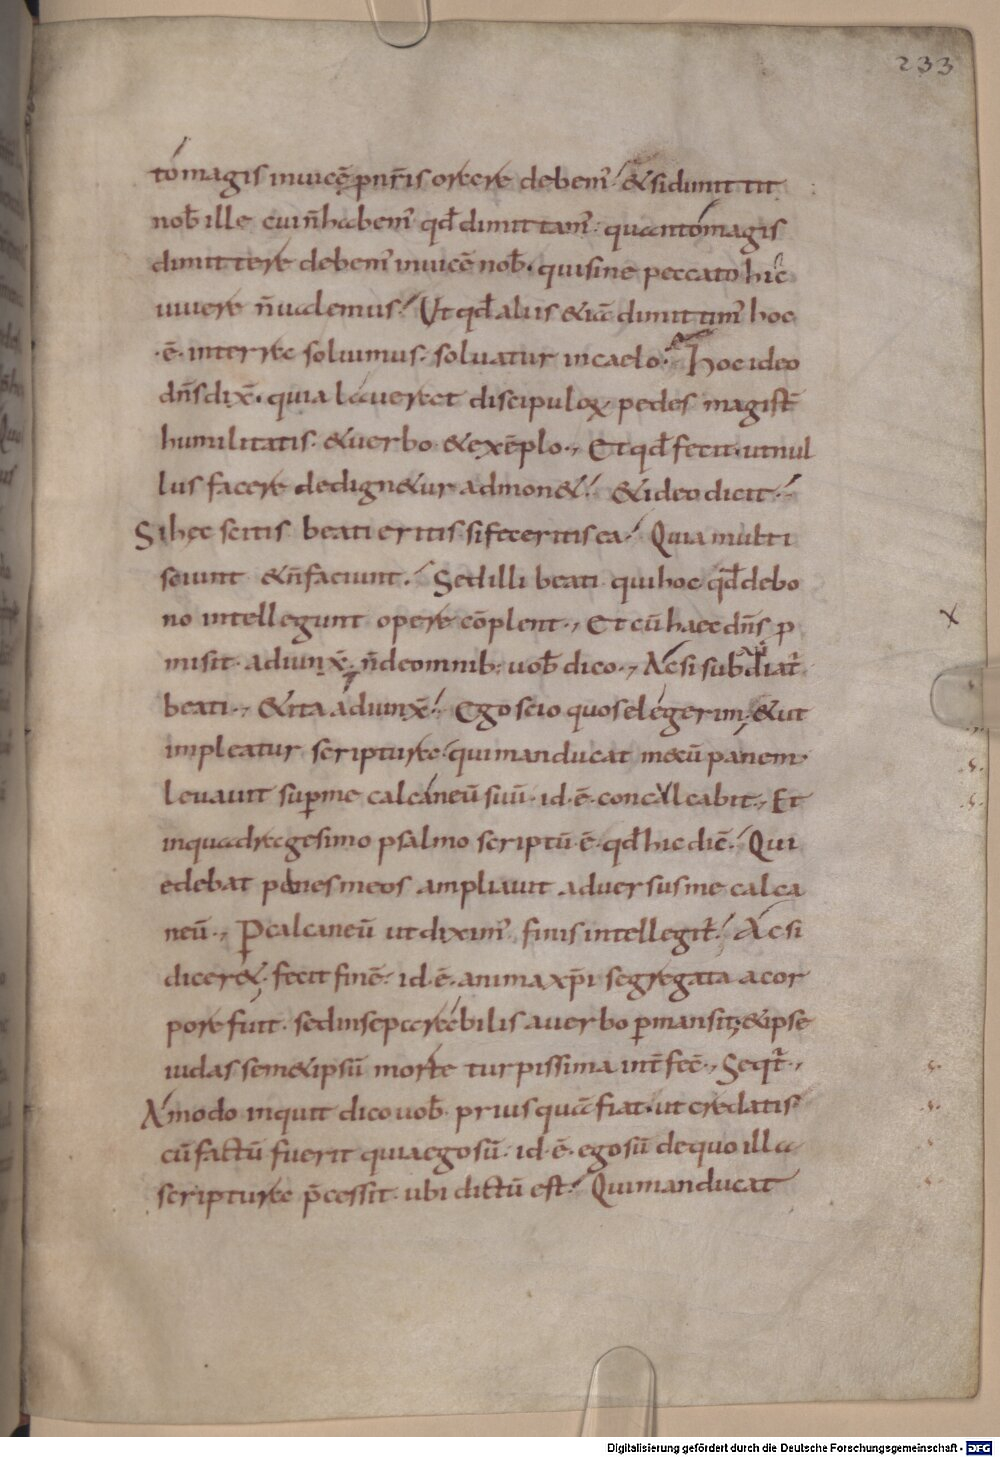 233
tomagis inuicē ꝓ nr̄is orare debem᾿ &sidimittit
nob̄ ille cui n̄ habem᾿ qđ dimittam᾿ quantomagis
dimittere debem᾿ inuicē nob̄· qui sine peccato hic
uiuere n̄ ualemus Ut qđ aliis &iā dimittim᾿ hoc
·ē· in terra soluimus· soluatur in caelo· Hoc ideo
dn̄s dix̄· quia lauerat discipuloꝝ pedes magist̄
humilitatis· & uerbo & exēplo·, Et qđ fecit· ut nul
lus facere dedign&ur admon&· & ideo dicit
Si hęc scitis beati eritis si feceritis ea· Quia multi
sciunt & n̄ faciunt· Sed illi beati qui hoc qđ debo
no intellegunt opere cōplent·, Et cū haec dn̄s ꝓ
misit· adiunx̄· n̄ de omnib; uob̄ dico·, Ac si subaudiat᷑
beati·, & ita adiunx̄· Ego scio quos elegerim· & ut
impleatur scriptura· qui manducat mecū panem·
leuauit suꝑ me calcaneū suū· id·ē· conculcabit·, Et
in quadragesimo psalmo scriptū·ē· qđ hic dic̄· Qui
edebat panes meos ampliauit aduersus me calca
neū·, Ꝑ calcaneū ut dixim᾿ finis intellegit᷑· Ac si
dicer& fecit finē· id·ē· anima xp̄i segregata a cor
pore fuit· sed inseparabilis a uerbo ꝑmansit; & ipse
iudas sem&ipsū morte turpissima int̄fec̄·, Seqt᷑·,
Amodo inquit dico uob̄· priusquā fiat· ut credatis
cū factū fuerit quia ego sū· id·ē· ego sū de quo illa
scriptura p̄cessit· ubi dictū est· Qui manducat
Digitalisierung gefördert durch die Deutsche Forschungsgemeinschaft - DFG